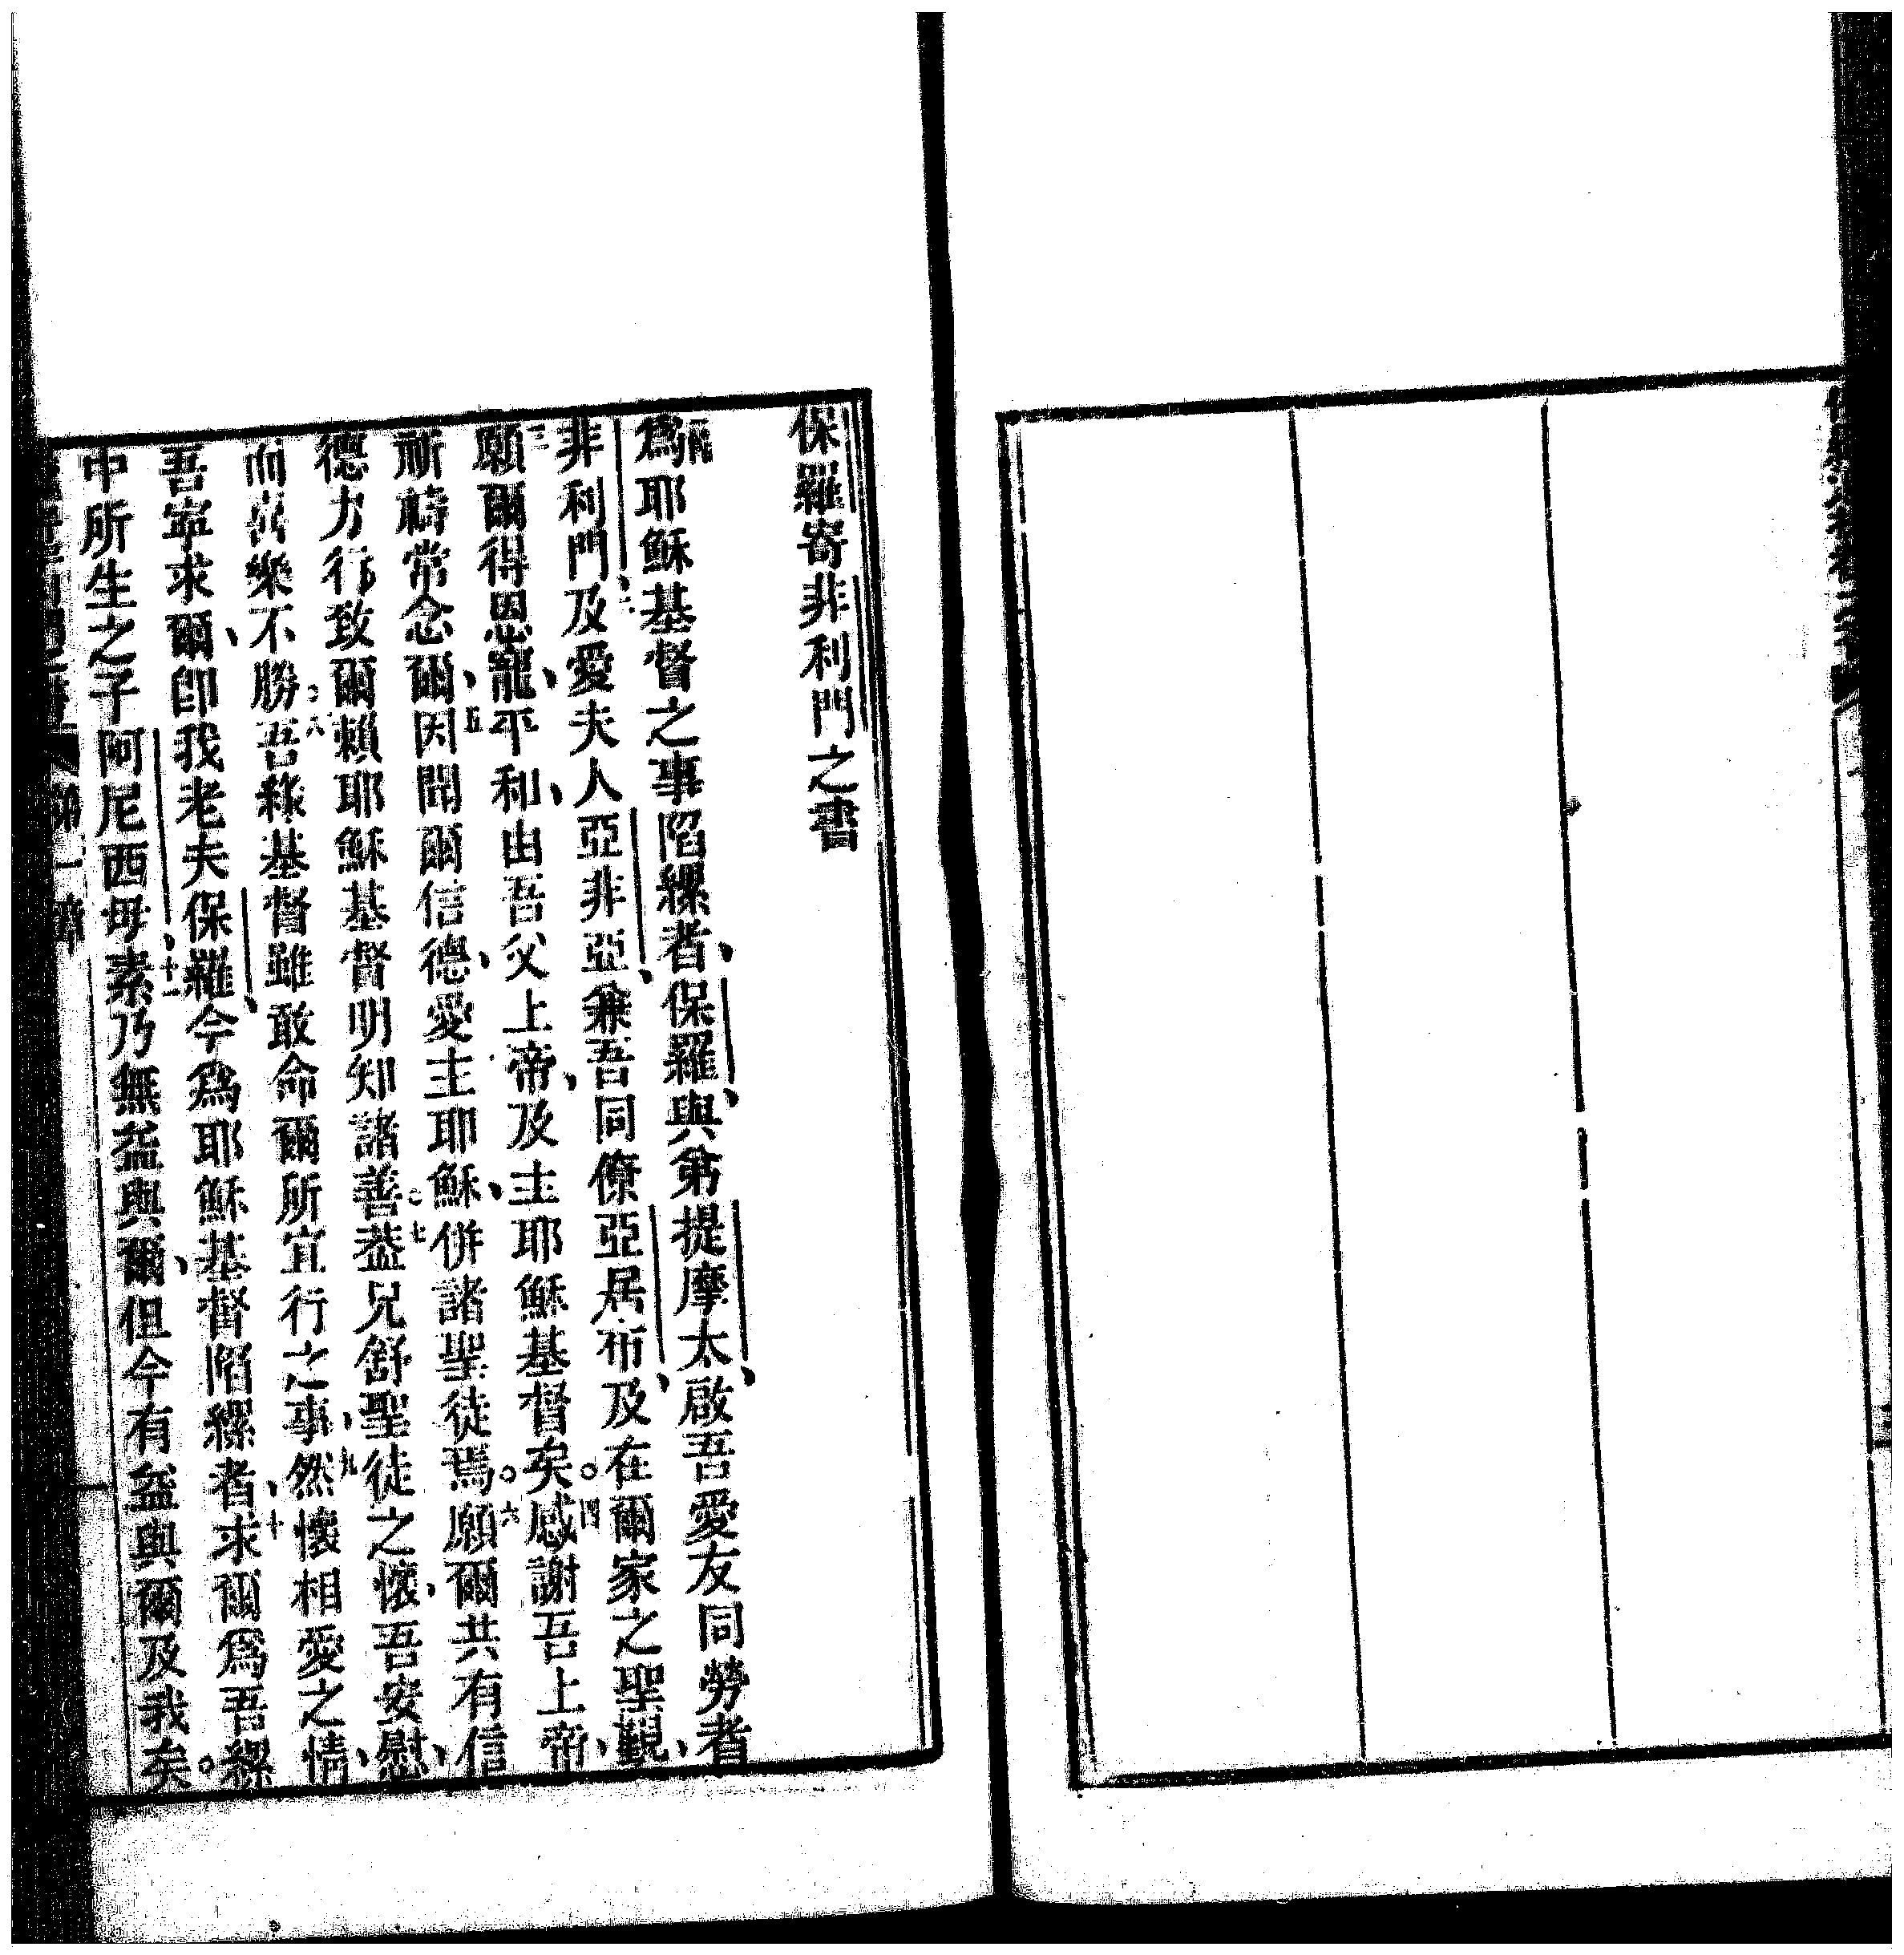 保羅寄非利門之書
爲耶穌基督之事陷縲者、保羅、與弟提摩太、啟吾愛友同勞者
非利門、二及愛夫人亞非亞、兼吾同僚亞居布、及在爾家之聖覲、
三願爾得恩寵、平和、由吾父上帝、及主耶穌基督矣。四感謝吾上帝、
祈禱常念爾、五因聞爾信德、愛主耶穌、併諸聖徒焉。六願爾共有信
德力行、致爾賴耶穌基督明知諸善。七葢兄舒聖徒之懷、吾安慰、
而喜樂不勝。八吾緣基督雖敢命爾所宜行之事、九然懷相愛之情、
吾寧求爾、卽我老夫保羅、今爲耶穌基督陷縲者、十求爾爲吾縲
中所生之子阿尼西母、十一素乃無益與爾、但今有益與爾及我矣。
第一